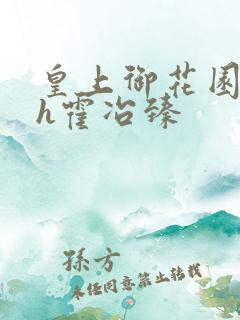 皇上御花园
h霍冶臻
孫方
未经同意禁止转载